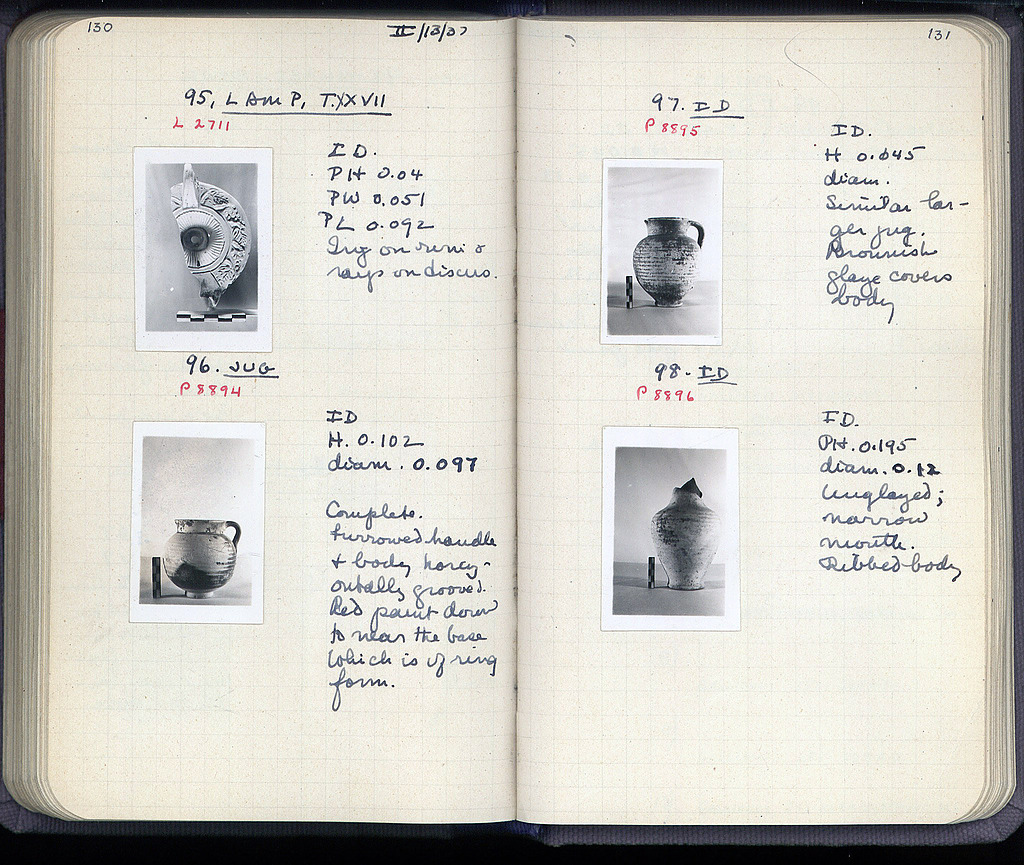 130
II/13/37
95, LAMP, T.XXVII
L 2711
ID.
PH 0.04
PW 0.051
PL 0.092
Ivy on rim &
rays on discus.
96. JUG
P 8894
ID
H. 0.102
diam. 0.097
Complete.
Furrowed handle
+ body horiz-
ontally grooved.
Red paint down
to near the base
which is of ring
form.
131
97. ID
P 8895
ID.
H 0.145
diam.
Similar lar-
ger jug.
Brownish
glaze covers
body
98. ID
P 8896
ID.
PH. 0.195
diam. 0.12
Unglazed;
narrow
mouth.
Ribbed body